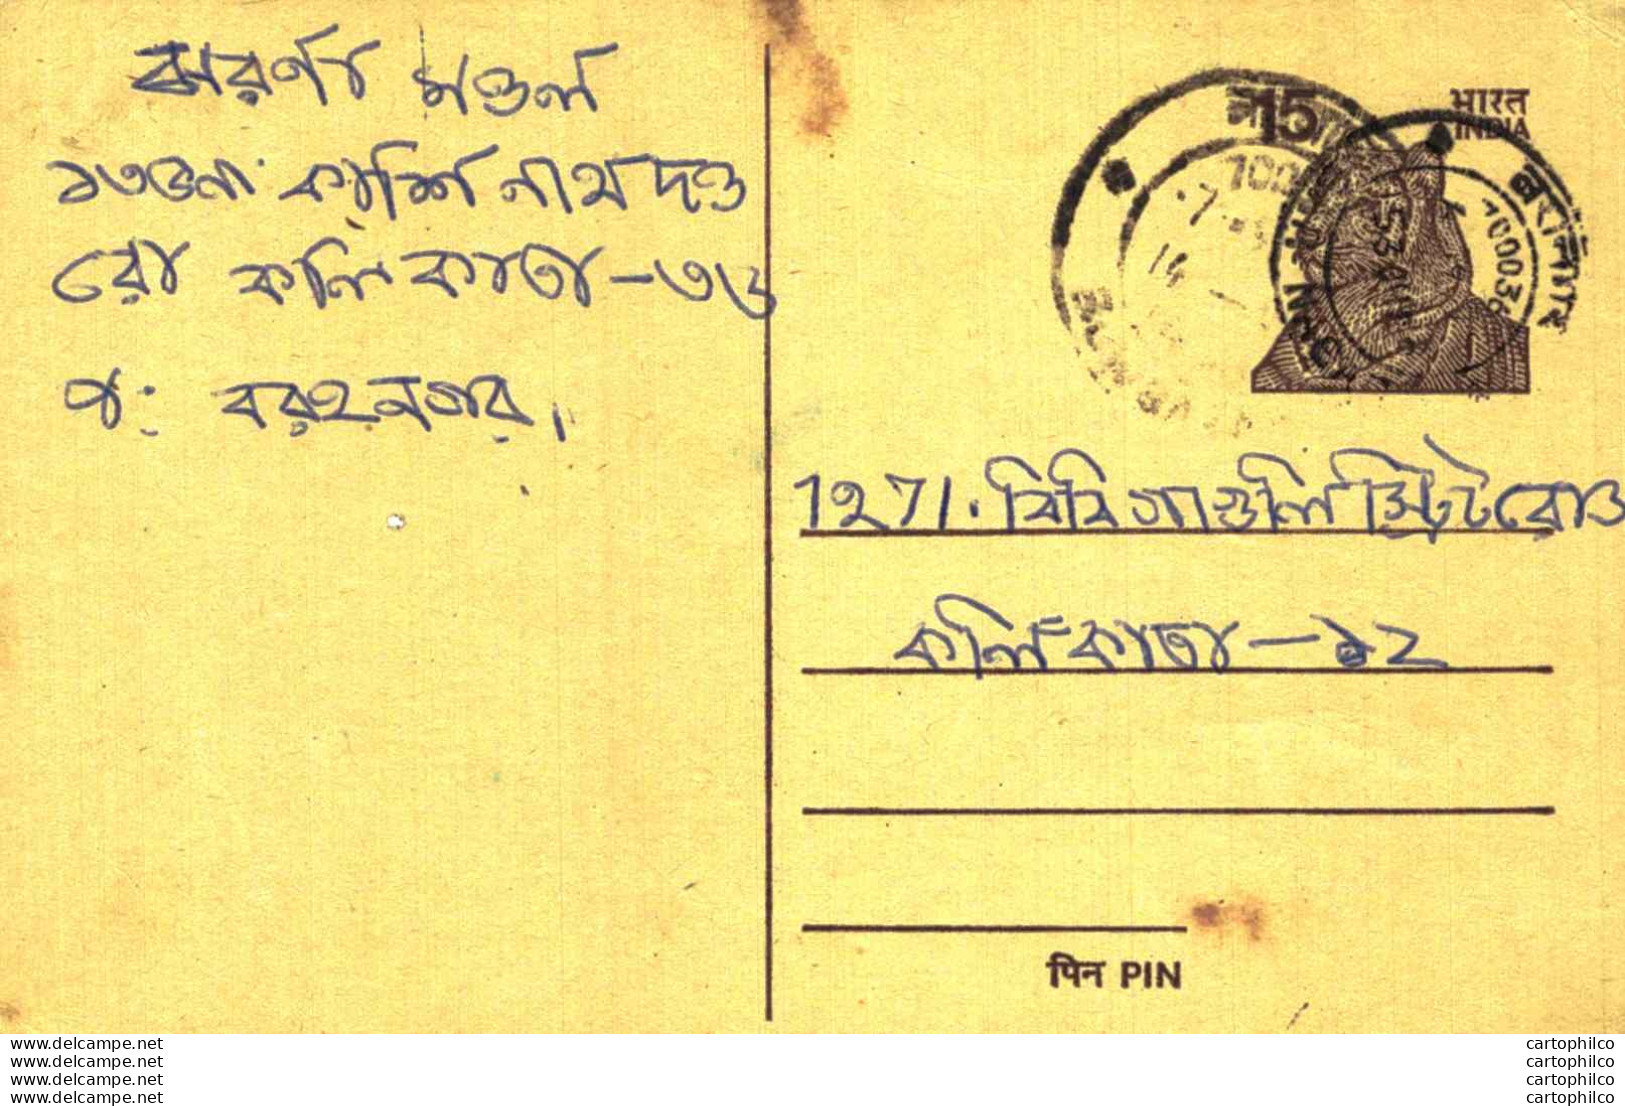 ঝরর্ণা মণ্ডল
১৩৬নং কাশিনাথ দত্ত
রো কলিকাতা-৩৬
প: বরহনগর।
15
भारत
INDIA
700036
127/1. বিবি গাঙ্গুলি স্ট্রিট রোড
কলিকাতা-১২
पिन PIN
www.delcampe.net
www.delcampe.net
www.delcampe.net
www.delcampe.net
cartophilco
cartophilco
cartophilco
cartophilco